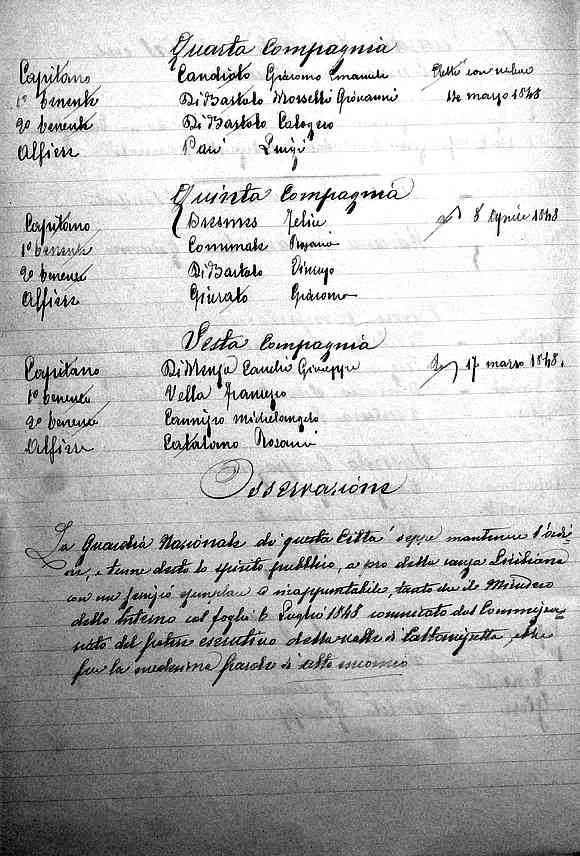 Quarta Compagnia
Capitano Candioto Giacomo Emanuele Eletti con
1º tenente Di Bartolo Morselli Giovanni 14 marzo 1848
2º tenente Di Bartolo Calogero
Alfiere Luigi
Quinta Compagnia
Capitano Felice 8 Aprile 1848
1º tenente Comunale Rosario
2º tenente Di Bartolo
Alfiere Giurato Giacomo
Sesta Compagnia
Capitano Di Menza Giuseppe 17 marzo 1848.
1º tenente Vella Francesco
2º tenente Cannizzo Michelangelo
Alfiere Catalano Rosario
Osservazione
La Guardia Nazionale di questa Città seppe mantenere l'ordi=
ne, e tenne desto lo spirito pubblico, a pro della causa Siciliana
con un servizio esemplare e inappuntabile, tanto che il Ministero
dello Interno col foglio 6 Luglio 1848 comunicato dal Commissa=
riato del potere esecutivo della valle di Caltanissetta, ebbe
per la medesima parole di alto encomio